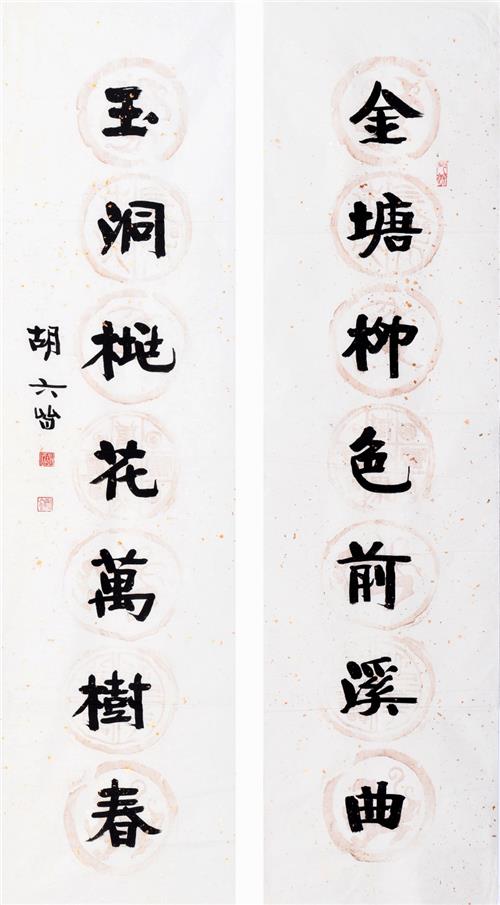 金塘柳色前溪曲
玉洞桃花萬樹春
胡六皆